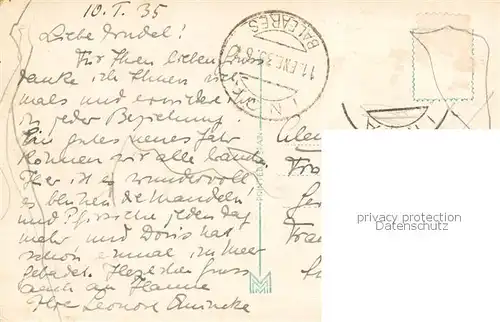 10.I.35
Liebe Trudel!
Für Ihren lieben Gruss
danke ich Ihnen viel-
mals und erwidere ihn
in jeder Beziehung
Ein gutes neues Jahr
können wir alle brauchen
Hier ist es wundervoll
es blühen die Mandeln
und Pfirsiche jeden Tag
mehr und Doris hat
schon einmal im Meer
gebadet. Herzlichen Gruss
auch an Hanne
Ihre Leonore
BALEARES
11 ENE 35
Alem
Fr
Ge
Fra
privacy protection